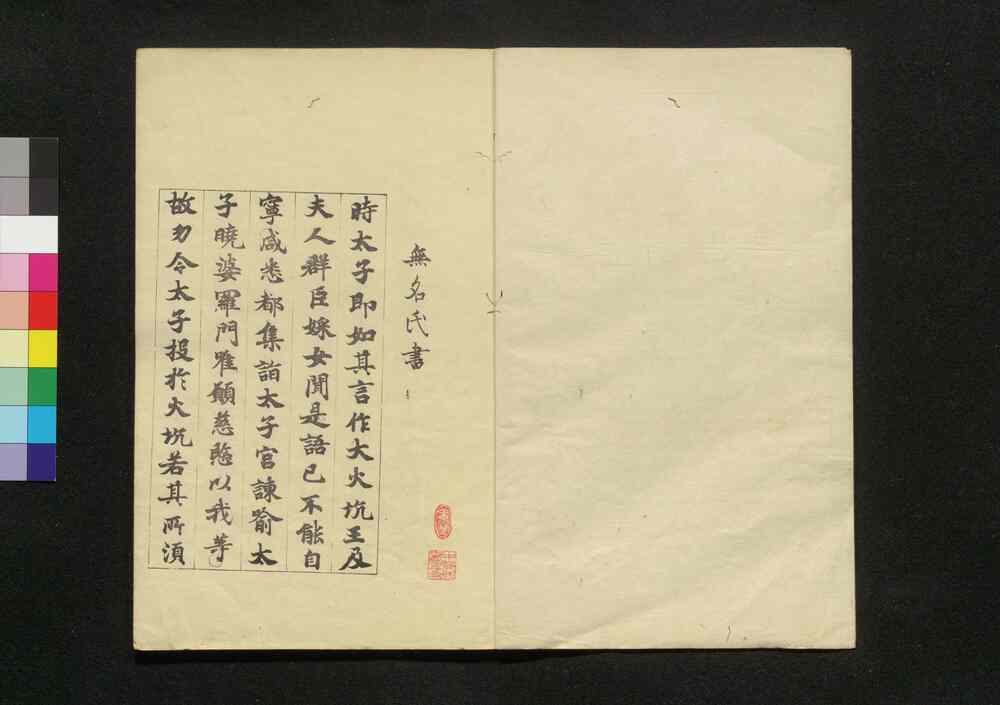 無名氏書
時太子即如其言作大火坑王及
夫人群臣婇女聞是語已不能自
寧咸悉都集詣太子宮諫喻太
子曉婆羅門唯願慈愍以我等
故勿令太子投於火坑若其所須